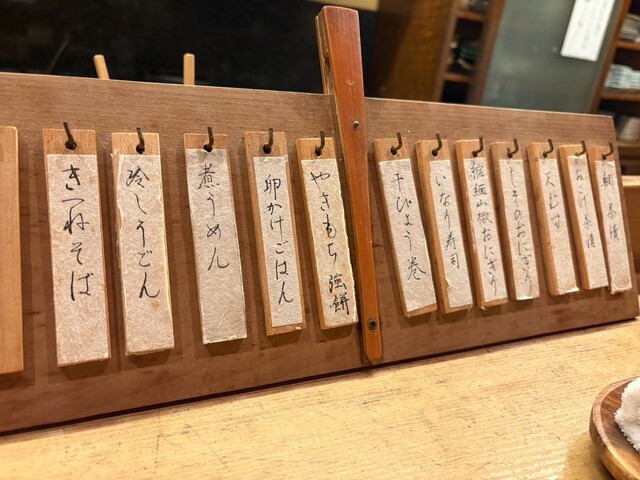 鯛茶漬
茶漬
天むす
しそのおにぎり
縮緬山椒おにぎり
いなり寿司
干ぴょう巻
やきもち 強餅
卵かけごはん
煮うめん
冷しうどん
きつねそば